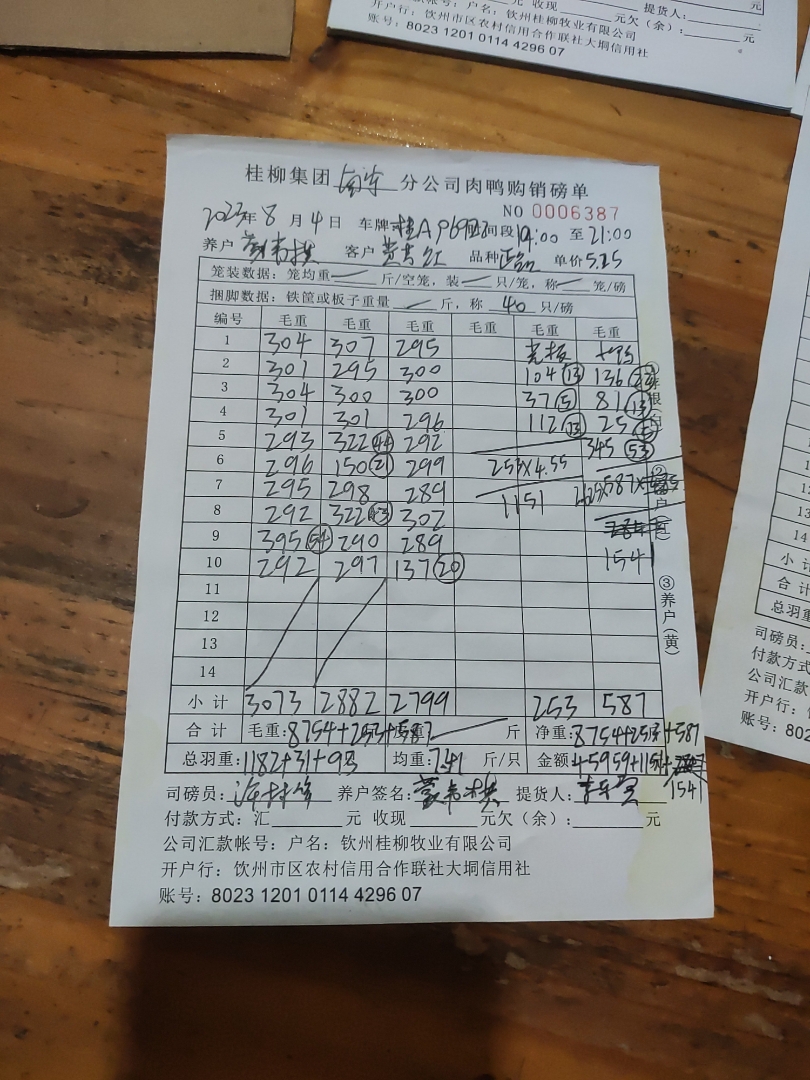 元 收现 提货人：
开户行：钦州市区农村信用合作联社大垌信用社
账号：8023 1201 0114 4296 07
元欠（余）： 元
桂柳集团 分公司肉鸭购销磅单
NO 0006387
2023年8月4日 车牌:桂A 时间段19:00至21:00
养户 客户 黄 红 品种 单价5.25
笼装数据：笼均重 斤/空笼，装 只/笼，称 笼/磅
捆脚数据：铁筐或板子重量 斤，称 40 只/磅
编号 毛重 毛重 毛重 毛重 毛重 毛重
1 304 307 295
2 301 295 300 104 (13) 136
3 304 300 300 37 (5) 81 (13)
4 301 301 296 112 (13) 25
5 293 322 (44) 292 345 (53)
6 296 150 (21) 299 253×4.55
7 295 298 289 1151
8 292 322 (43) 302
9 395 (54) 290 289
10 292 297 137 (20) 1541
11
12
13
14
小计 3073 2882 2799 253 587
合计 毛重:8754+253+587 斤 净重:8754+253+587
总羽重:1182+31+93 均重:7.41 斤/只 金额:45959+1151+
1541
司磅员: 养户签名: 提货人:
付款方式：汇 元 收现 元欠（余）: 元
公司汇款帐号：户名：钦州桂柳牧业有限公司
开户行：钦州市区农村信用合作联社大垌信用社
账号：8023 1201 0114 4296 07
③养户（黄）
10
11
12
13
14
小计
合计
总羽重
司磅员:
付款方式
公司汇款
开户行:
账号: 802